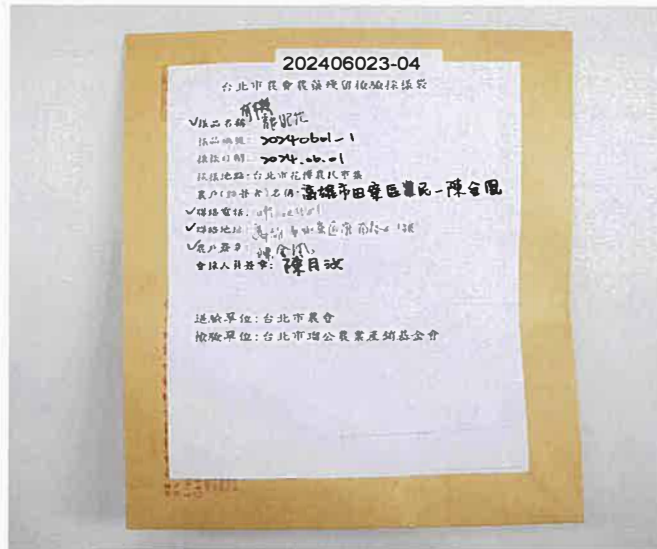 202406023-04
台北市農會農藥殘留檢驗採樣袋
有機
樣品名稱:
樣品編號: 20240601-1
採樣日期: 2024.06.01
採樣地點:台北市花博農民市集
農戶(經營者)名稱:高雄市田寮區農民-陳金鳳
聯絡電話:
聯絡地址:
農戶簽章: 陳金鳳
會採人員簽章:
送驗單位:台北市農會
檢驗單位:台北市瑠公農業產銷基金會